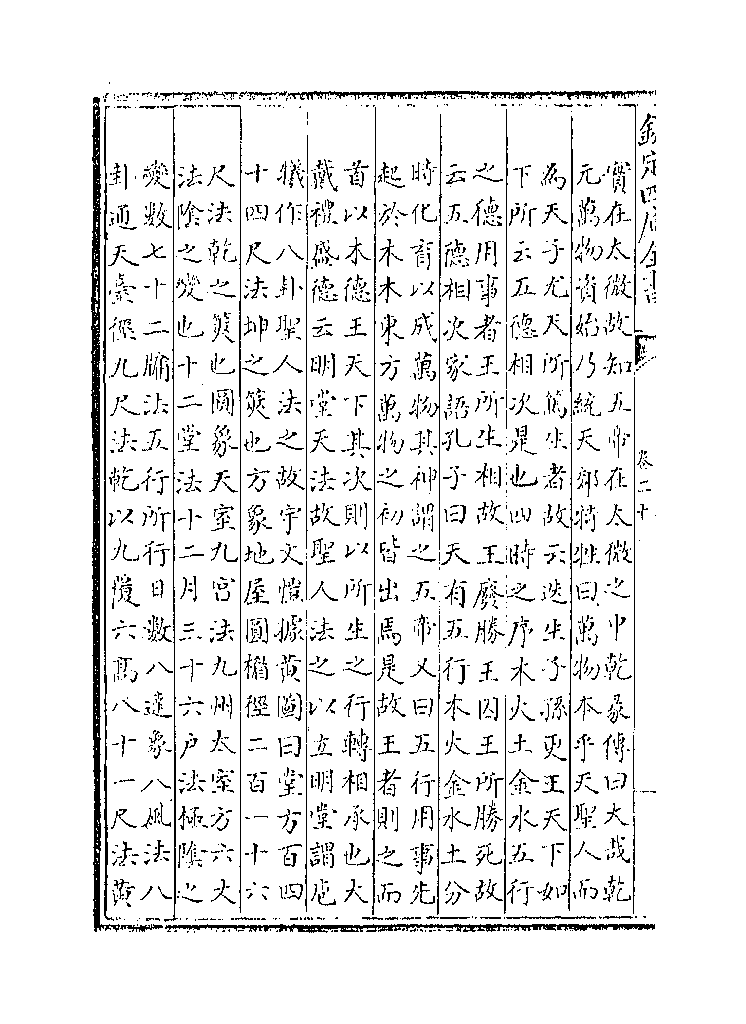 欽定四庫全書
卷二十
實在太微故知五帝在太微之中乾彖傳曰大哉乾
元萬物資始乃統天郊特牲曰萬物本乎天聖人而
為天子尤天所篤生者故云迭生子孫更王天下如
下所云五德相次是也四時之序木火土金水五行
之德用事者王所生相故王廢勝王囚王所勝死故
云五德相次家語孔子曰天有五行木火金水土分
時化育以成萬物其神謂之五帝又曰五行用事先
起於木木東方萬物之初皆出焉是故王者則之而
首以木德王天下其次則以所生之行轉相承也大
戴禮盛德云明堂天法故聖人法之以立明堂謂庖
犧作八卦聖人法之故宇文愷據黄圖曰堂方百四
十四尺法坤之筴也方象地屋圓楣徑二百一十六
尺法乾之筴也圓象天室九宫法九州太室方六丈
法陰之變也十二堂法十二月三十六户法極陰之
變數七十二牖法五行所行日數八達象八風法八
卦通天臺徑九尺法乾以九覆六高八十一尺法黄